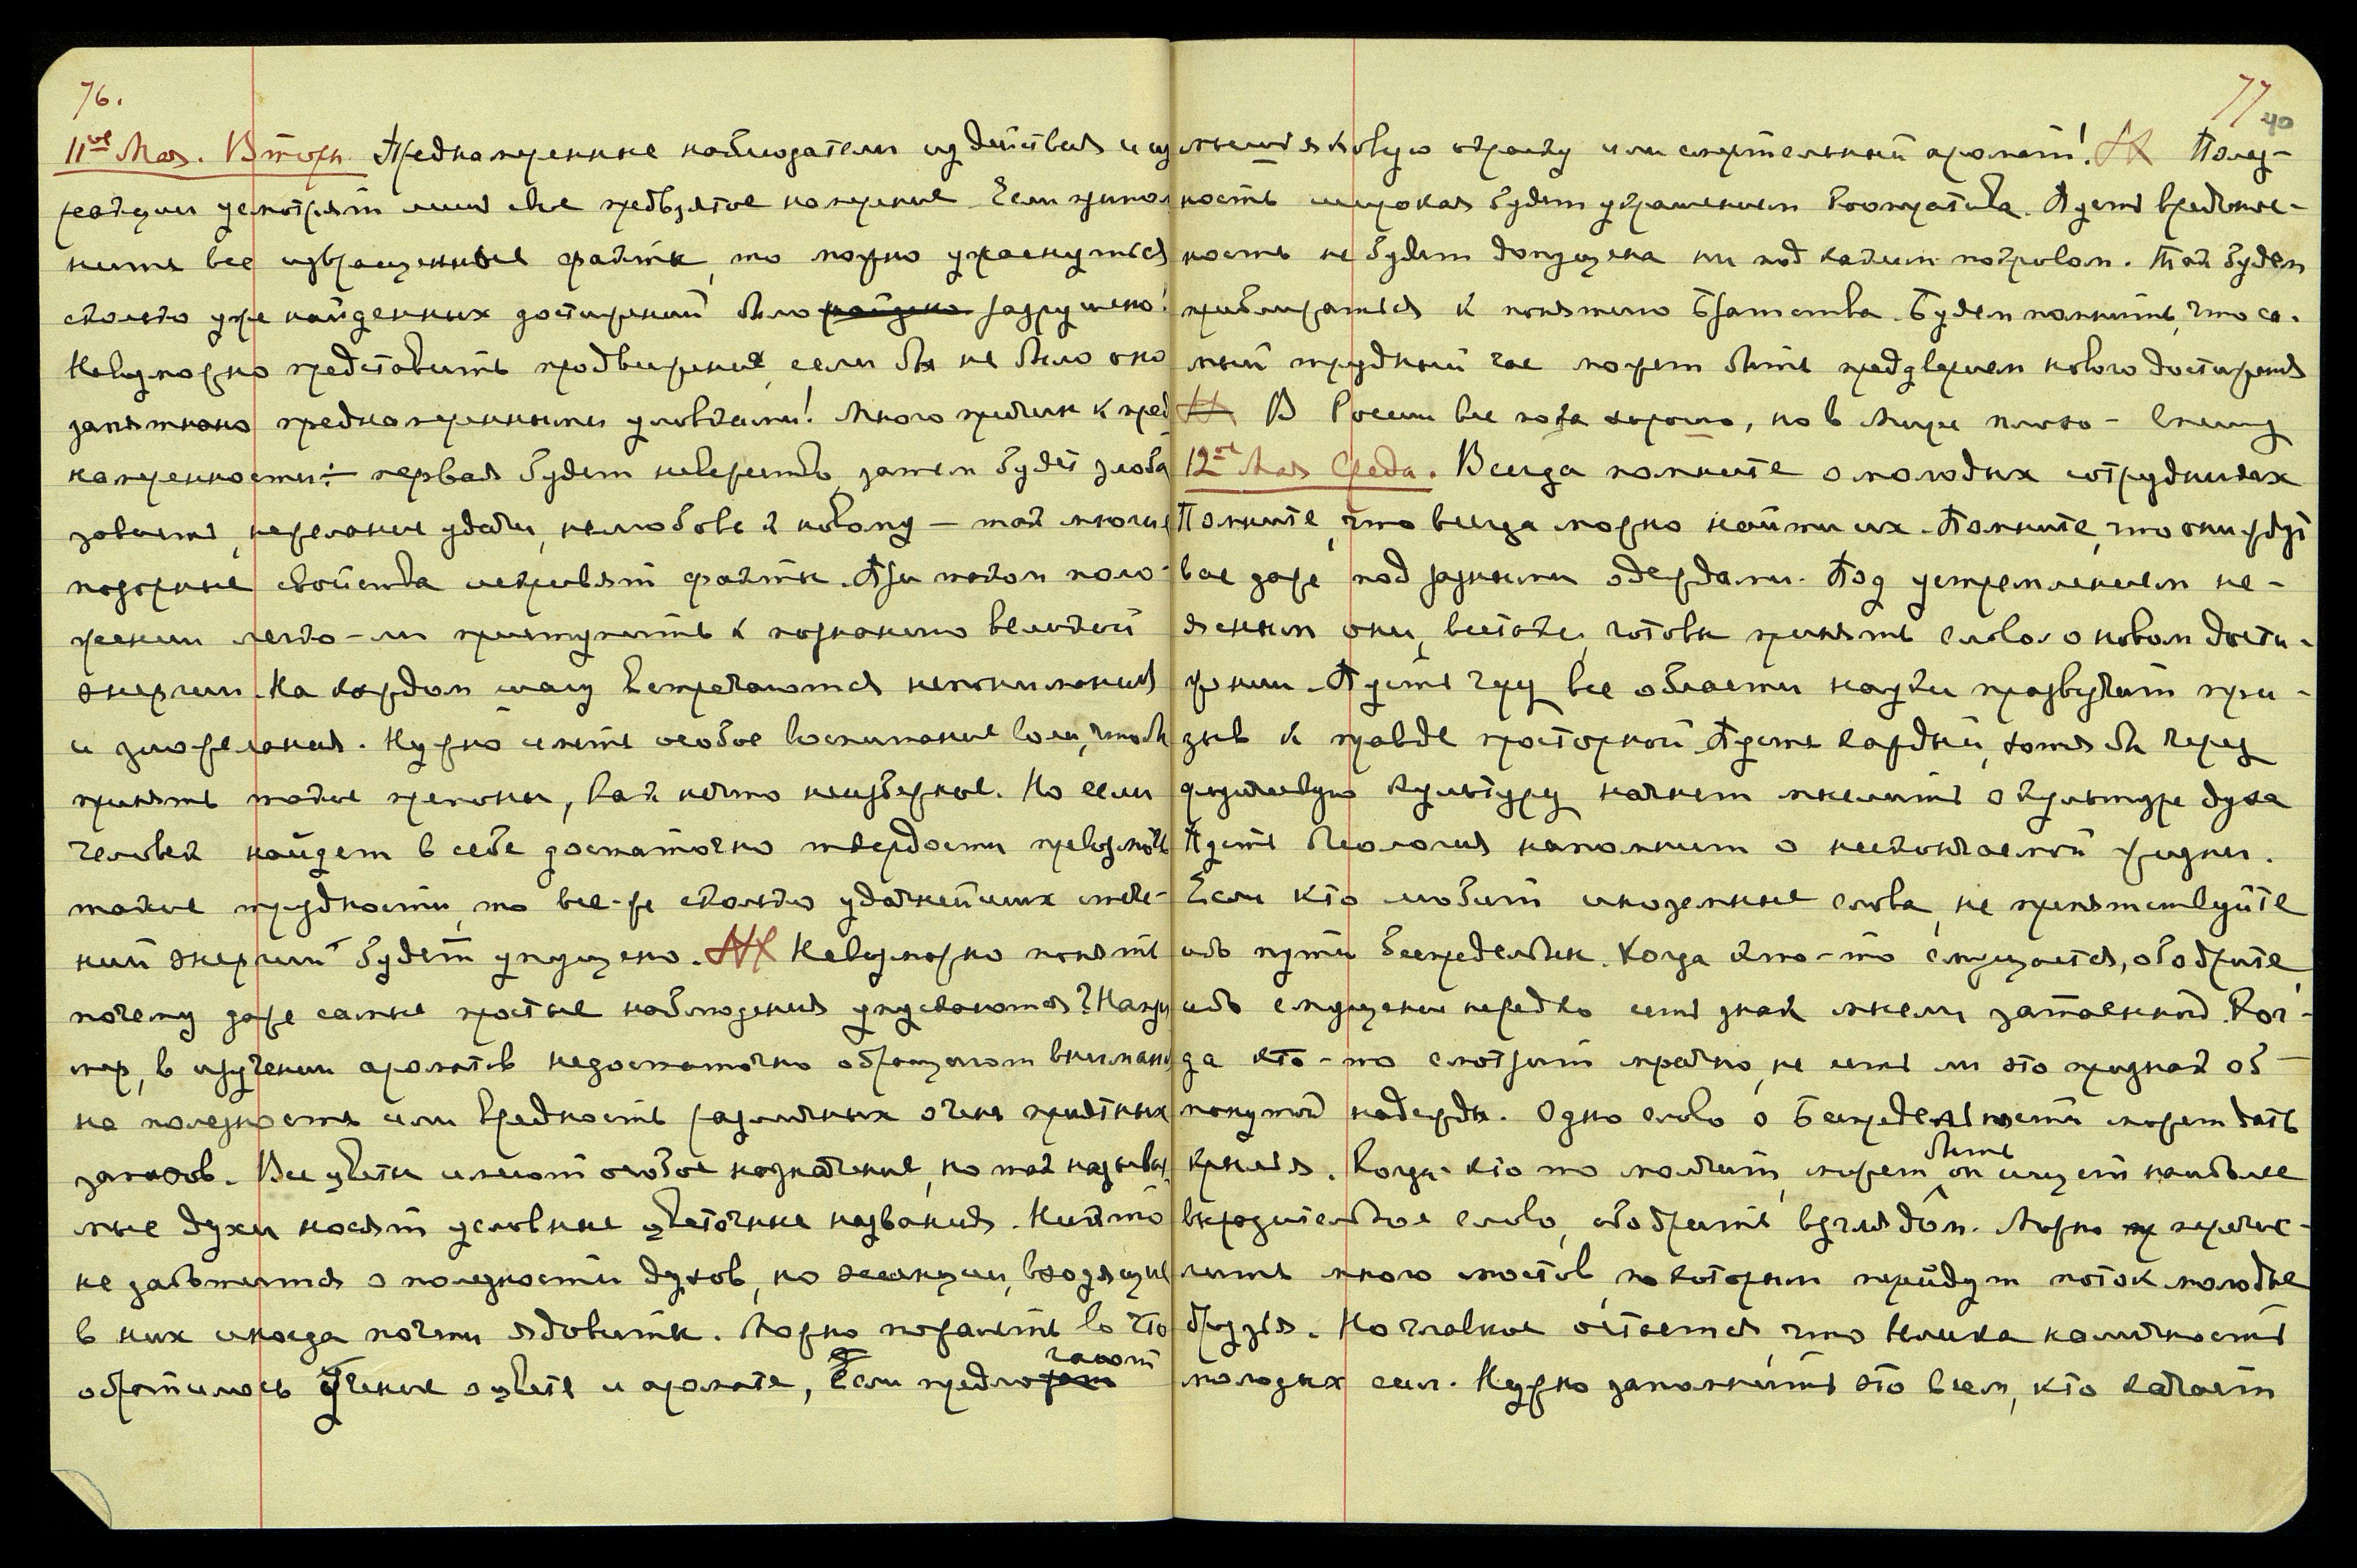 76.
11ое Мая. Вторн. Преднамеренные наблюдатели из действия и из
реакции усмотрят лишь свое предвзятое намерение. Если припом
нить все извращенные факты, то можно ужаснуться
сколько уже найденных достижений было найдено разрушено!
Невозможно представить продвижения, если бы не было оно
запятнано преднамеренными уловками! Много причин к пред
намеренности: – первая будет неверность, затем будет злоба
зависть, нежелание удачи, нелюбовь к новому – так многие
позорные свойства искривят факты. При таком поло-
жении легко-ли приступить к познанию великой
энергии. На каждом шагу встречаются непонимания
и зложелания. Нужно иметь особое воспитание воли, чтобы
принять такие препоны, как нечто неизбежное. Но если
человек найдет в себе достаточно твердости превозмочь
такие трудности, то все-же сколько удачнейших стече-
ний энергий будет упущено. Невозможно понять
почему даже самые простые наблюдения упускаются? Напри
мер, в изучении ароматов недостаточно обращают внимани
на полезность или вредность различных очень приятных
запахов. Все цветы имеют особое назначение, но так называе
мые духи носят условные цветочные названия. Никто
не заботится о полезности духов, но эссенции, входящие
в них иногда почти ядовиты. Можно пожалеть во что
обратилось Учение о цвете и аромате, Если предлагают
77
40
мышьяковую окраску или смертельный аромат! Полез-
ность широкая будет украшением Кооператива. Пусть вредонос-
ность не будет допущена ни под каким покровом. Так будем
приближаться к понятию Братства. Будем помнить, что са-
мый трудный час может быть преддверием нового достижения
В России все пока хорошо, но в Мире плохо –
12ое Мая Среда. Всегда помните о молодых сотрудниках
Помните, что всегда можно найти их. Помните, что они ждут
вас даже под разными одеждами. Под устремлением не-
ясным они, всетаки, готовы принять слово о новом дости-
жении. Пусть через все области науки прозвучит при-
зыв к правде просторной. Пусть каждый, хотя бы через
физическую культуру начнет мыслить о культуре духа
Пусть биология напомнит о нескончаемой жизни.
Если кто любит иноземные слова, не препятствуйте
ибо пути беспредельны. Когда кто-то смущается, ободрите,
ибо смущение нередко есть знак мысли затаенной. Ког-
да кто-то смотрит мрачно, не есть ли это признак об-
манутой надежды. Одно слово о Беспредельности может дать
крылья. Когда кто то молчит, может быть он ищет наиболее
выразительное слово, ободрить взглядом. Можно пр перечис-
лить много мостов, по которым перейдут поток молодые
друзья. Но главное остается, что велика наличность
молодых сил. Нужно запомнить это всем, кто качает